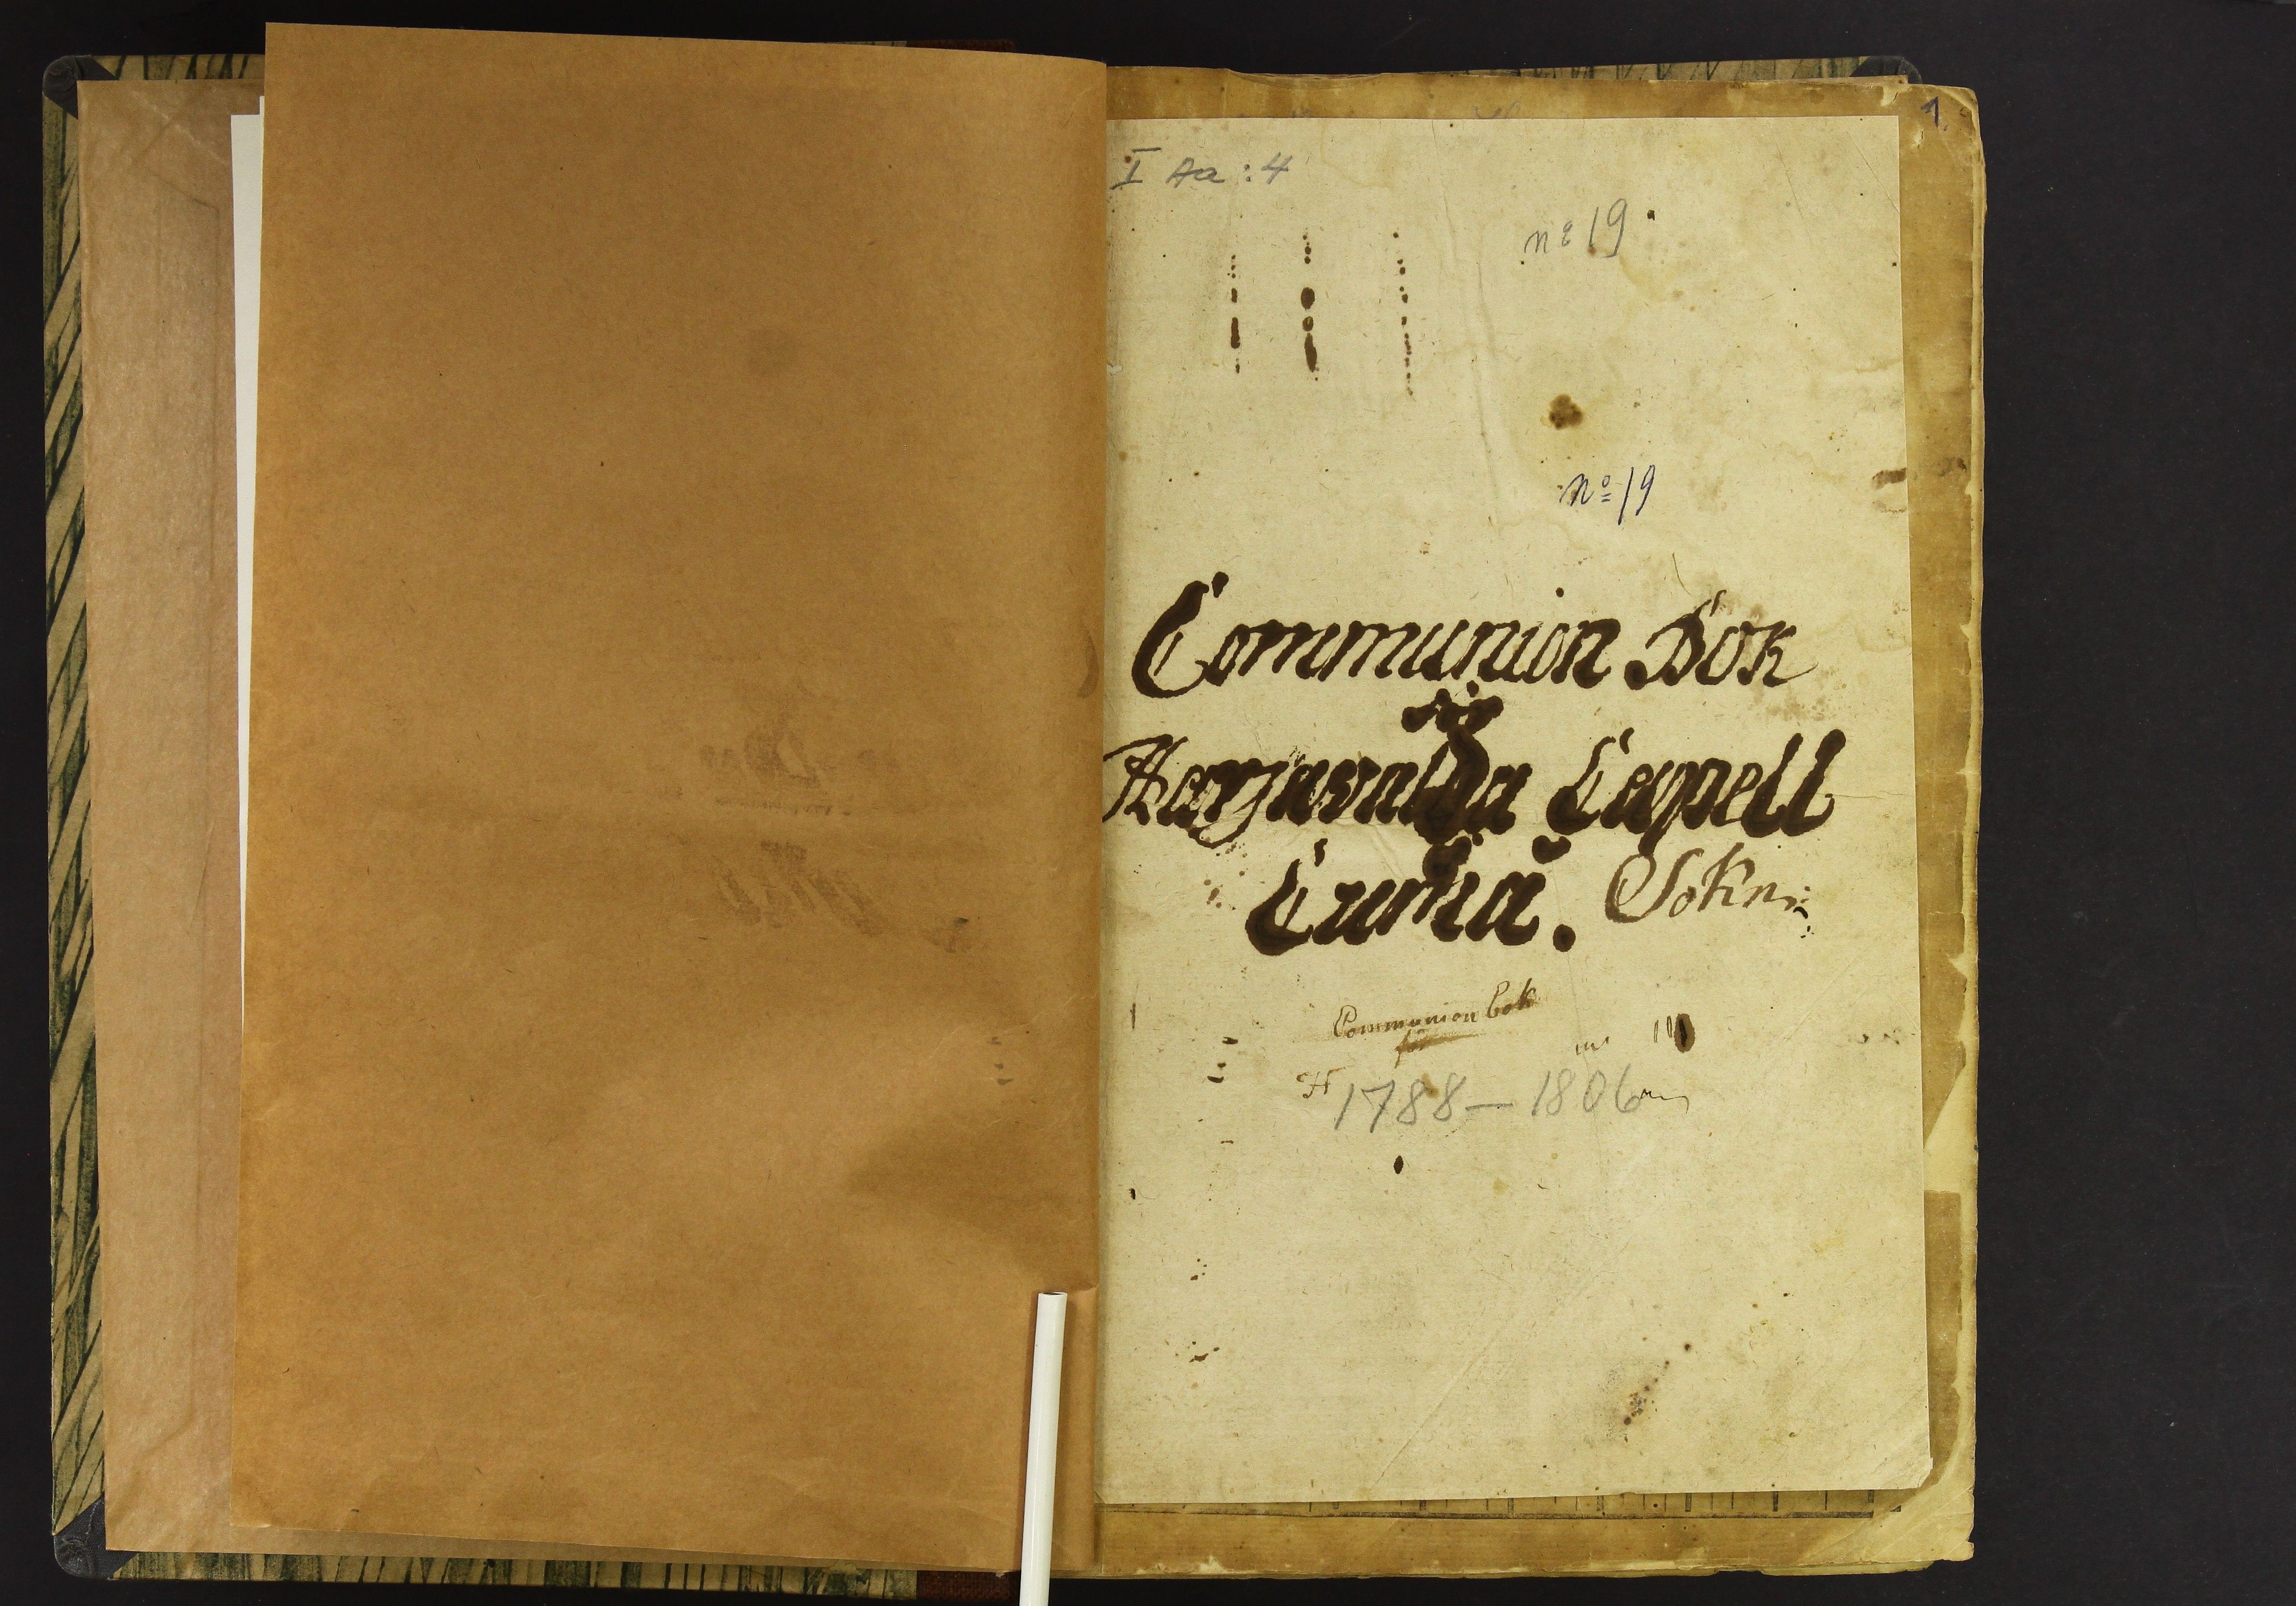 1.
I Aa:4
no 19
No 19
Communion Bok
för
Harjavalda Capell
Eura. Sokn:
Communion bok
för
H
1788-1806